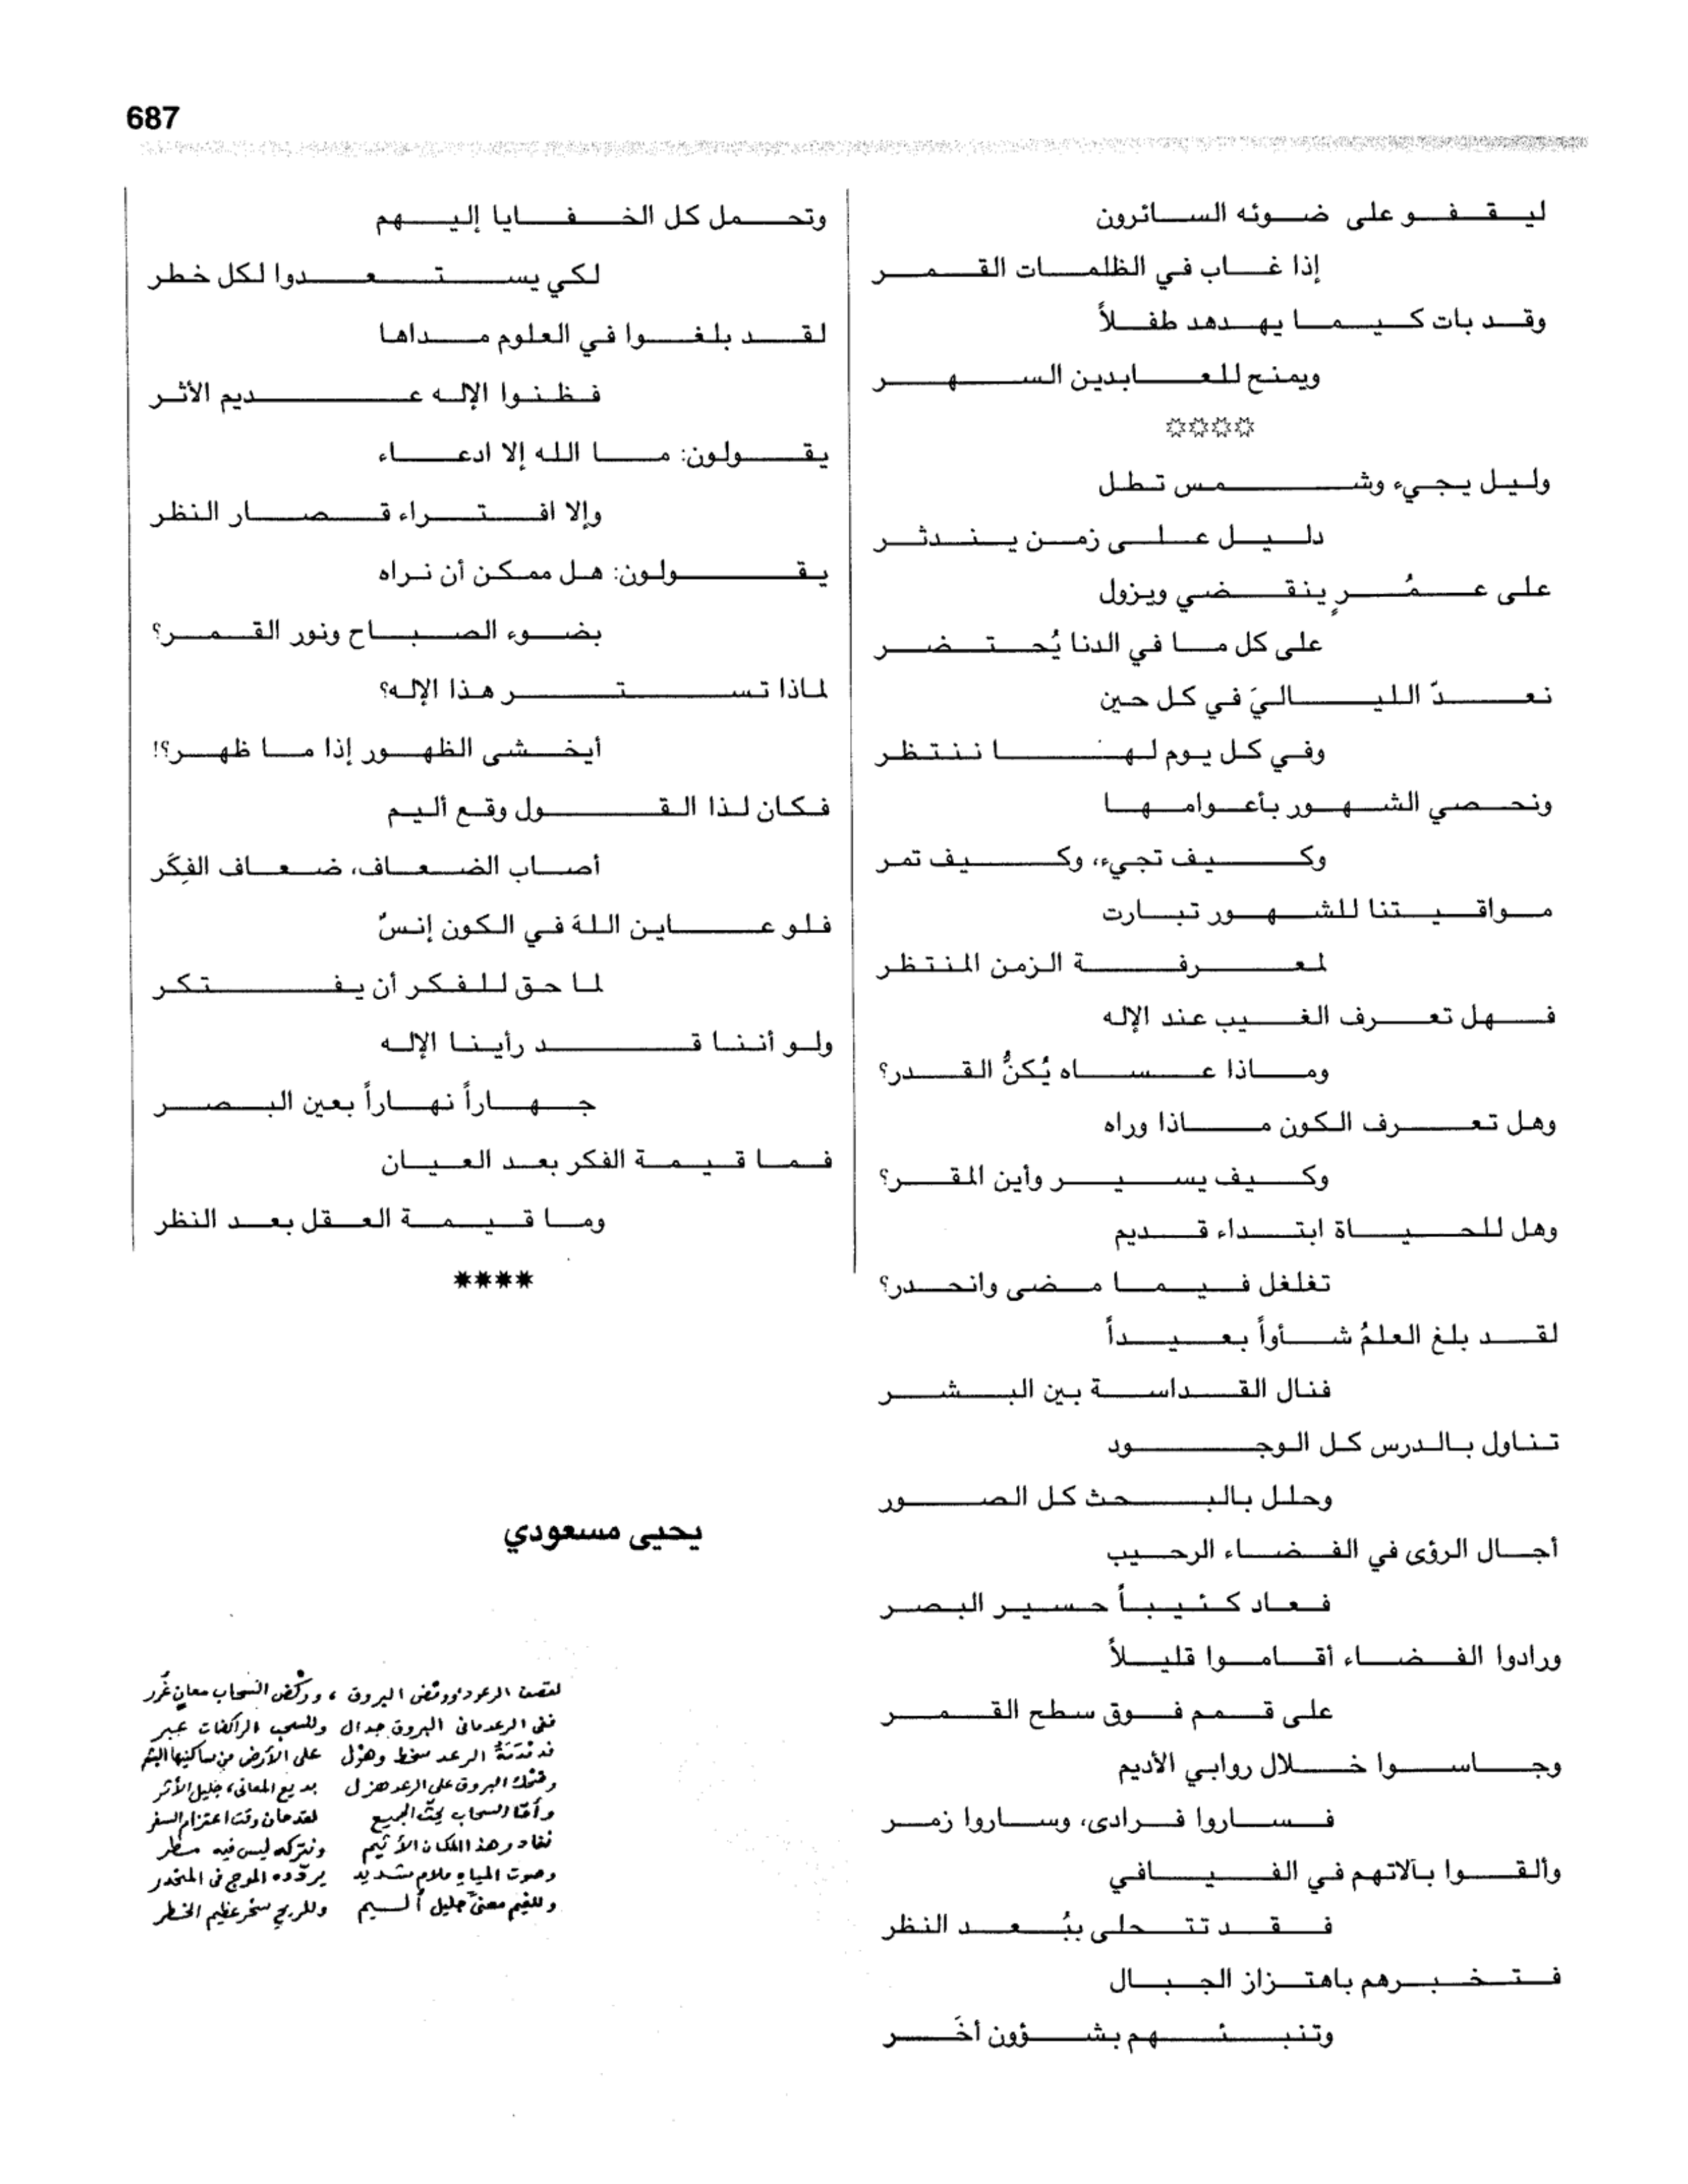 687
ليقفو على ضوئه السائرون
إذا غاب في الظلمات القمر
وقد بات كيما يهدهد طفلاً
ويمنح للعابدين السهر
وليل يجيء وشمس تطل
دليل على زمن يندثر
على عمُرٍ ينقضي ويزول
على كل ما في الدنا يُحتضر
نعدّ اللياليَ في كل حين
وفي كل يوم لها ننتظر
ونحصي الشهور بأعوامها
وكيف تجيء، وكيف تمر
مواقيتنا للشهور تبارت
لمعرفة الزمن المنتظر
فهل تعرف الغيب عند الإله
وماذا عساه يُكنُّ القدر؟
وهل تعرف الكون ماذا وراه
وكيف يسير وأين المقر؟
وهل للحياة ابتداء قديم
تغلغل فيما مضى وانحدر؟
لقد بلغ العلمُ شأواً بعيداً
فنال القداسة بين البشر
تناول بالدرس كل الوجود
وحلل بالبحث كل الصور
أجال الرؤى في الفضاء الرحيب
فعاد كئيباً حسير البصر
ورادوا الفضاء أقاموا قليلاً
على قمم فوق سطح القمر
وجاسوا خلال روابي الأديم
فساروا فرادى، وساروا زمر
وألقوا بآلاتهم في الفيافي
فقد تتحلى ببُعد النظر
فتخبرهم باهتزاز الجبال
وتنبئهم بشؤون أخَر
وتحمل كل الخفايا إليهم
لكي يستعدوا لكل خطر
لقد بلغوا في العلوم مداها
فظنوا الإله عديم الأثر
يقولون: ما الله إلا ادعاء
وإلا افتراء قصار النظر
يقولون: هل ممكن أن نراه
بضوء الصباح ونور القمر؟
لماذا تستر هذا الإله؟
أيخشى الظهور إذا ما ظهر؟!
فكان لذا القول وقع أليم
أصاب الضعاف، ضعاف الفِكَر
فلو عاين اللهَ في الكون إنسٌ
لما حق للفكر أن يفتكر
ولو أننا قد رأينا الإله
جهاراً نهاراً بعين البصر
فما قيمة الفكر بعد العيان
وما قيمة العقل بعد النظر
****
يحيى مسعودي
لقصف الرعود وومض البروق ، وركض السحاب معانٍ غُرر
ففي الرعد مافي البروق جدال وللسحب الراكضات عبر
الرعد سخط وهزل على الأرض من ساكنيها البشر
وضحك البروق على الرعد هزل بديع المعاني، جليل الأثر
وأمّا السحاب يحثّ الجميع لقد حان وقت اعتزام السفر
نغادر هذا المكان الأثيم ونتركه ليس فيه مطر
وصوت المياه ملام شديد يردّده الموج في المنحدر
وللغيم معنىً جليل أليم وللريح سحر عظيم الخطر